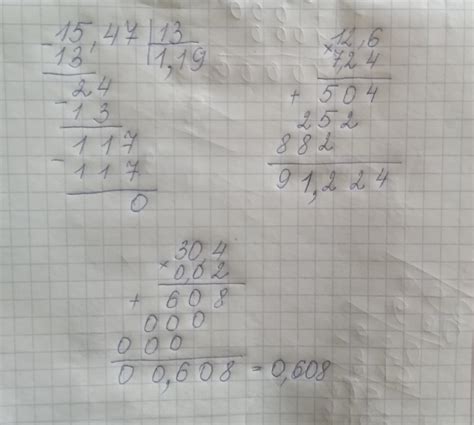 15,47 | 13
- 13 | 1,19
24
- 13
117
- 117
0
× 12,6
7,24
+ 504
252
882
91,224
× 30,4
0,02
+ 608
000
000
00,608 = 0,608